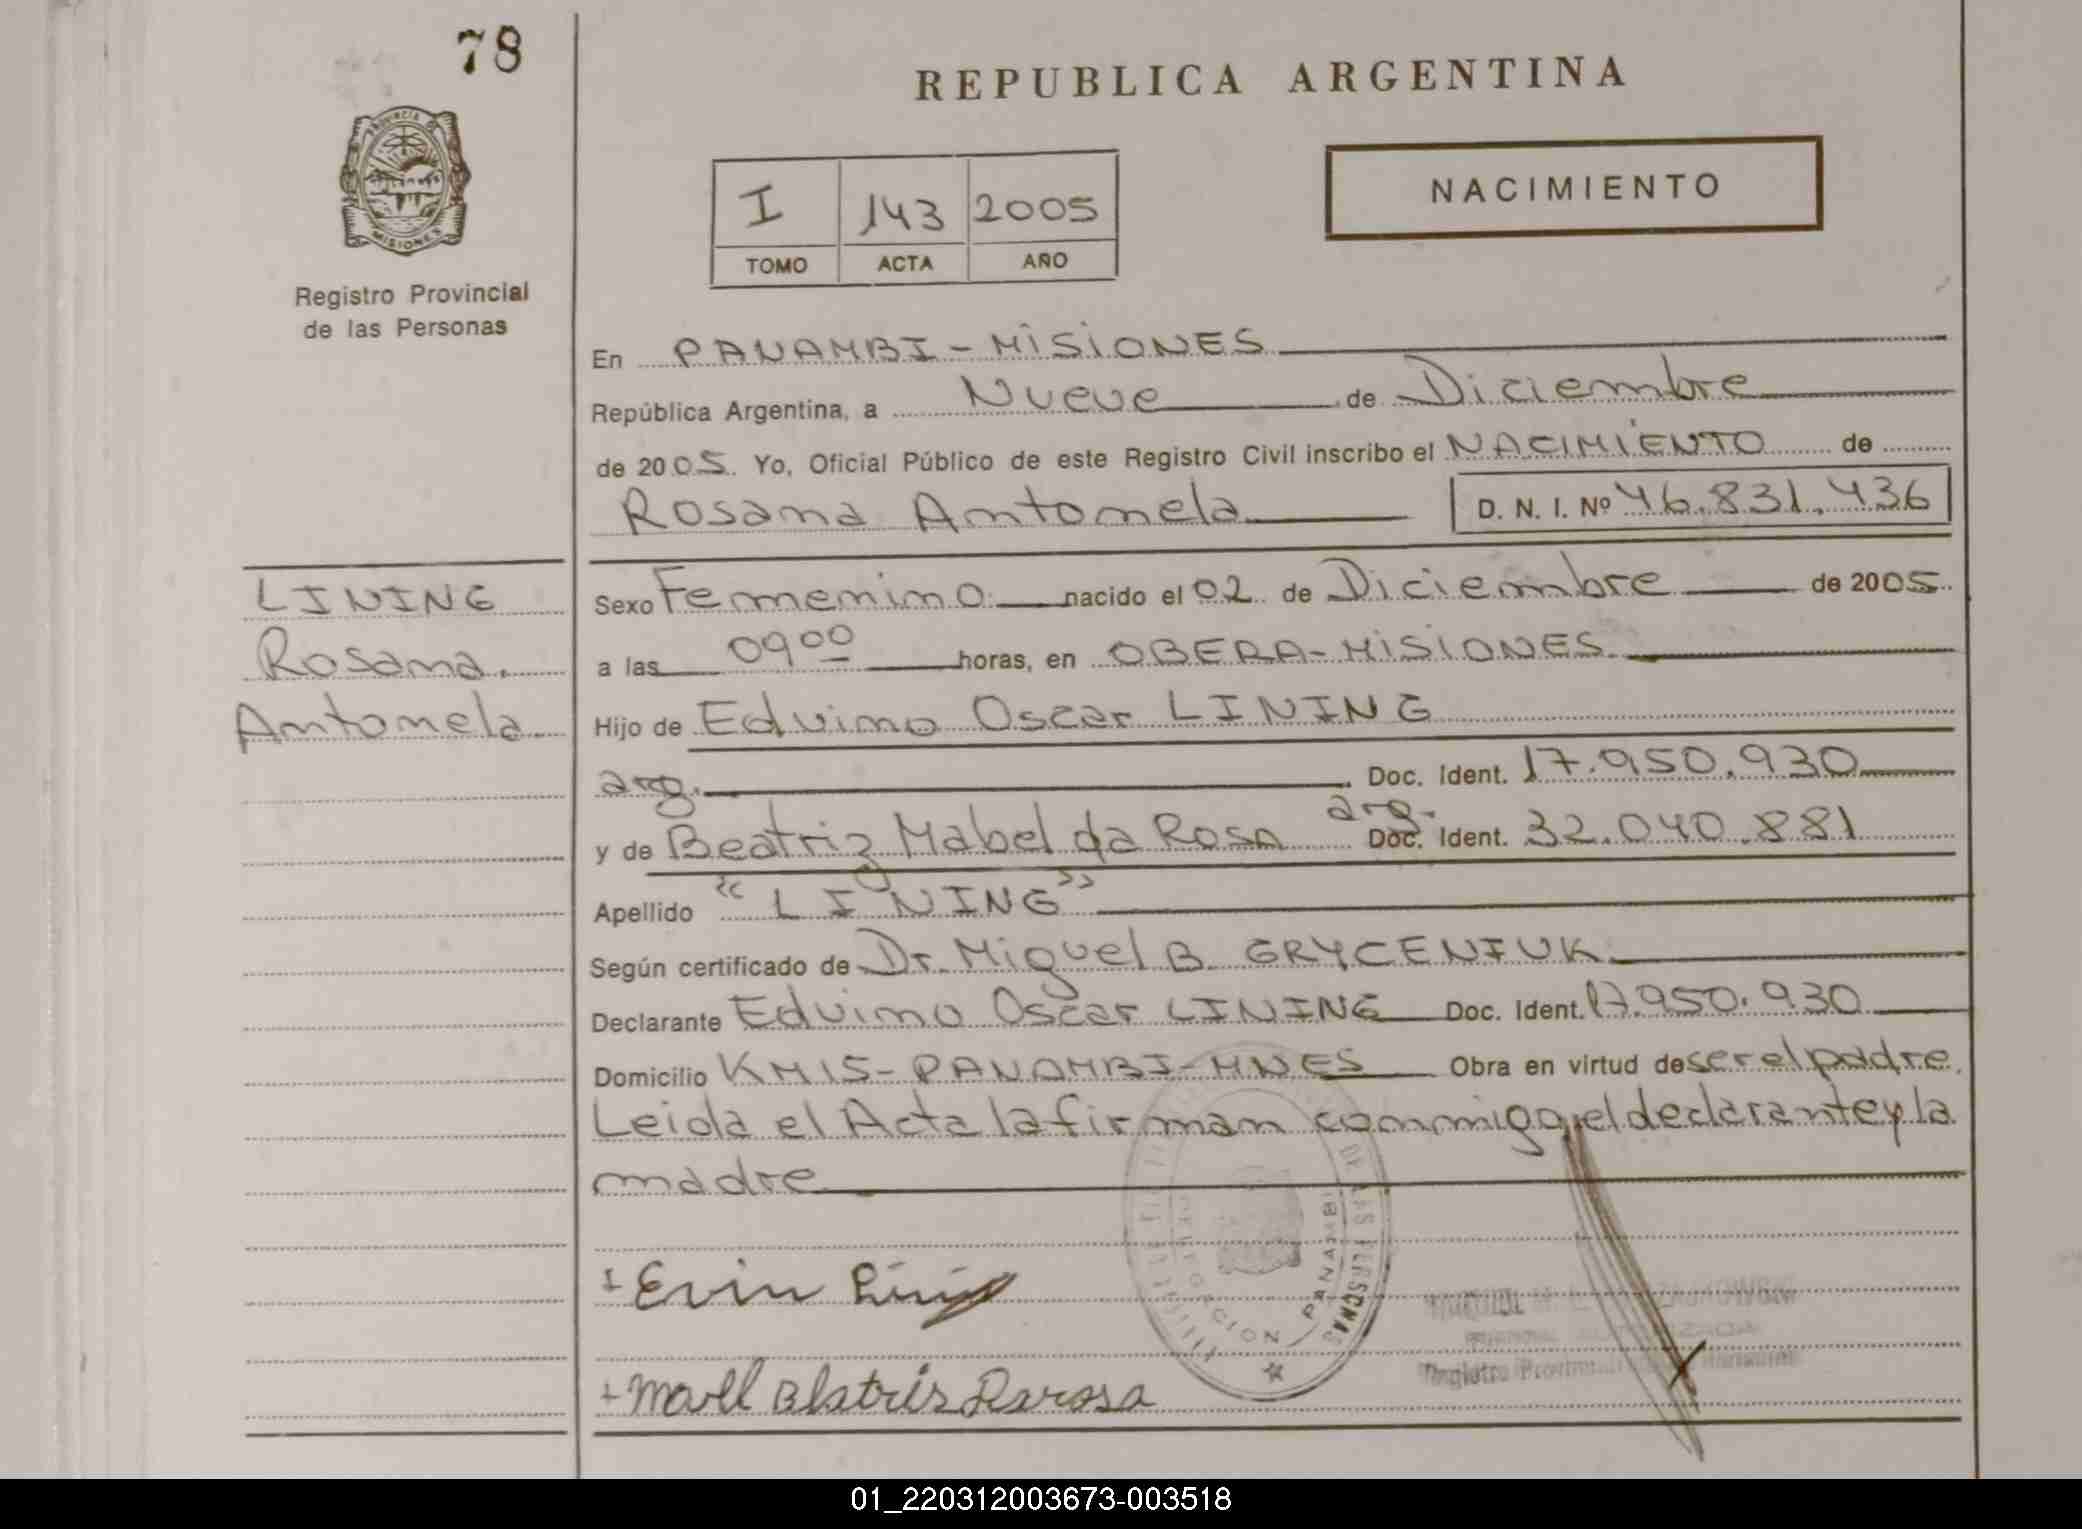 78
REPUBLICA ARGENTINA
PROVINCIA DE
MISIONES
NACIMIENTO
I 143 2005
TOMO ACTA AÑO
Registro Provincial
de las Personas
En PANAMBI - MISIONES
República Argentina, a Nueve de Diciembre
de 2005. Yo, Oficial Público de este Registro Civil inscribo el NACIMIENTO de
Rosana Antonela D. N. I. Nº 46.831.436
LINING
Rosana
Antonela
Sexo Femenino nacido el 02 de Diciembre de 2005
a las 09 00 horas, en OBERA - MISIONES
Hijo de Edvino Oscar LINING
arg. Doc. Ident. 17.950.930
y de Beatriz Mabel da Rosa arg. Doc. Ident. 32.040.881
Apellido "LINING"
Según certificado de Dr. Miguel B. GRYCENIUK
Declarante Edvino Oscar LINING Doc. Ident. 17.950.930
Domicilio KM15-PANAMBI-MNES Obra en virtud de ser el padre.
Leida el Acta la firman conmigo, el declarante y la
madre
DE LAS PERSONAS
PANAMBI
+ Mabel Beatris Darosa
01_220312003673-003518